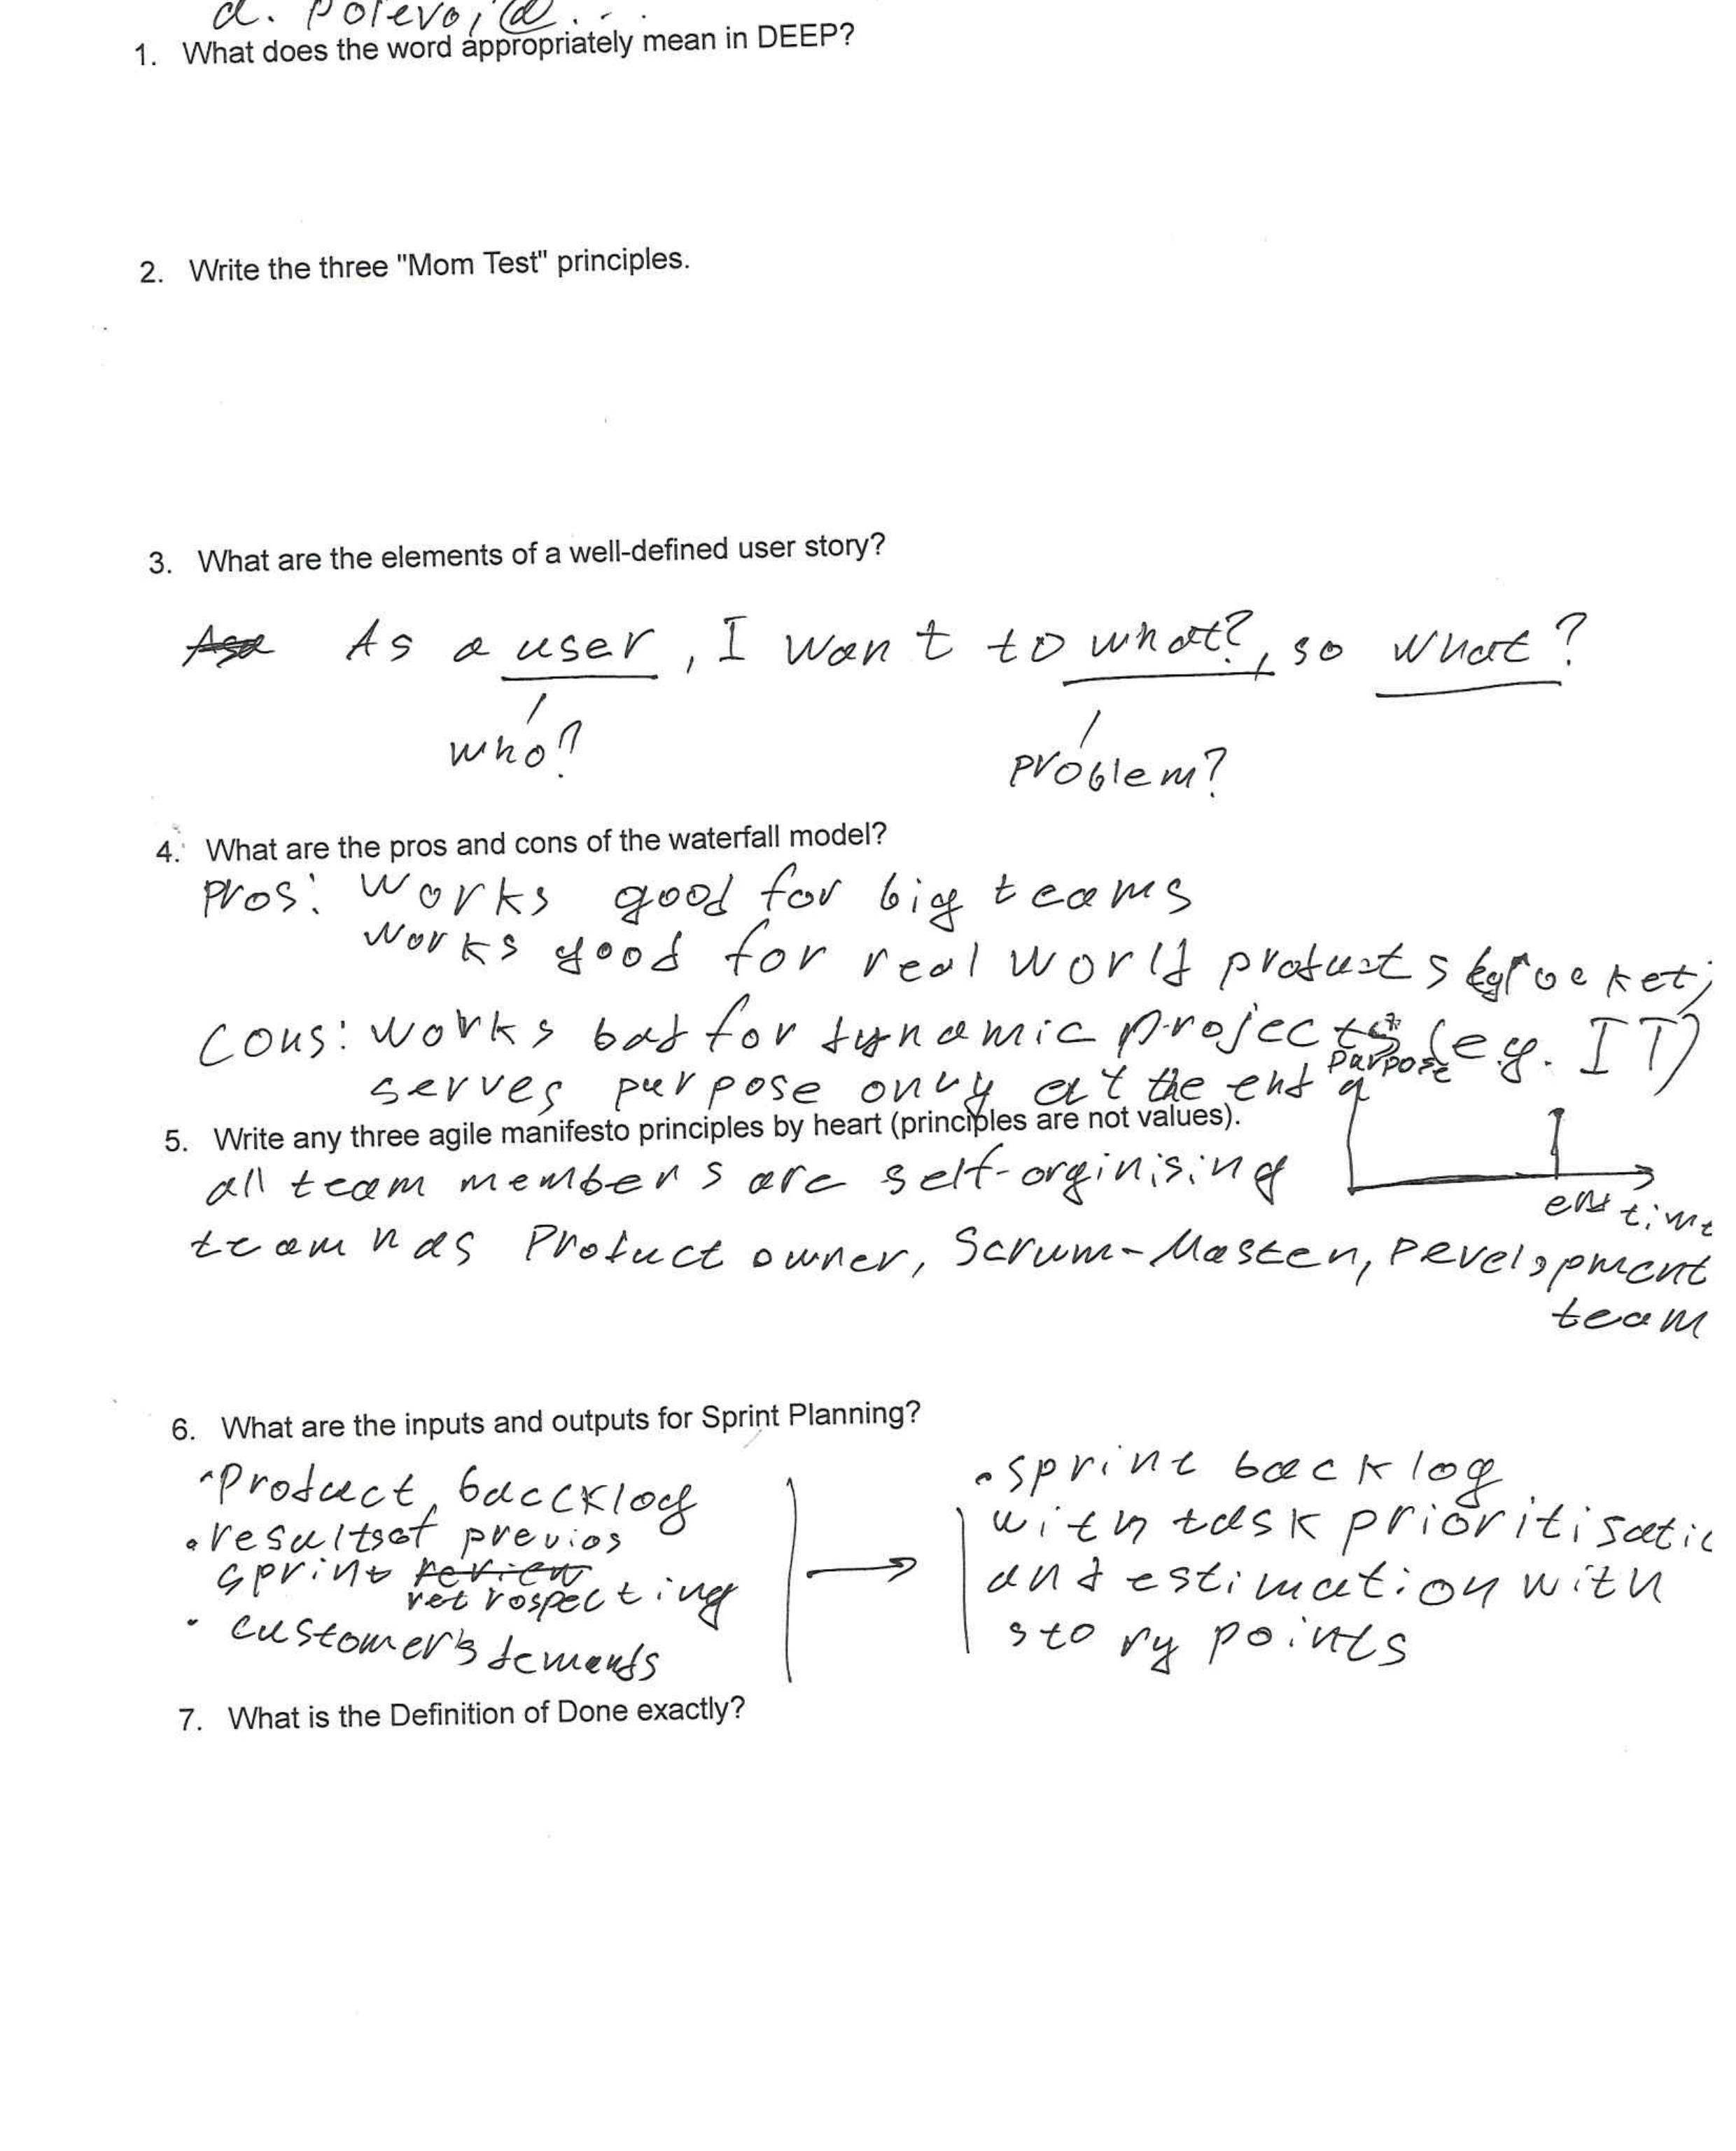 a. polevoi@
1. What does the word appropriately mean in DEEP?
2. Write the three "Mom Test" principles.
3. What are the elements of a well-defined user story?
As a user, I want to what?, so what?
who?
problem?
4. What are the pros and cons of the waterfall model?
pros: works good for big teams
works good for real world products eg rocket;
cons: works bad for dynamic projects (e.g. IT)
purpose
serves purpose only at the end
5. Write any three agile manifesto principles by heart (principles are not values).
all team members are self-orginising
end time
team has Product owner, Scrum-Master, Development
team
6. What are the inputs and outputs for Sprint Planning?
• Product backklog
• results of previos
sprint review
retrospecting
• customer's demands
• sprint backlog
with task prioritisatio
and estimation with
story points
7. What is the Definition of Done exactly?